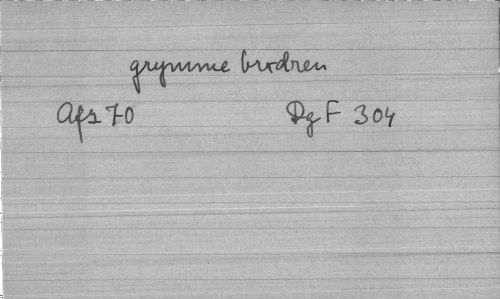 grymme brodren
Afz 70 DgF 304